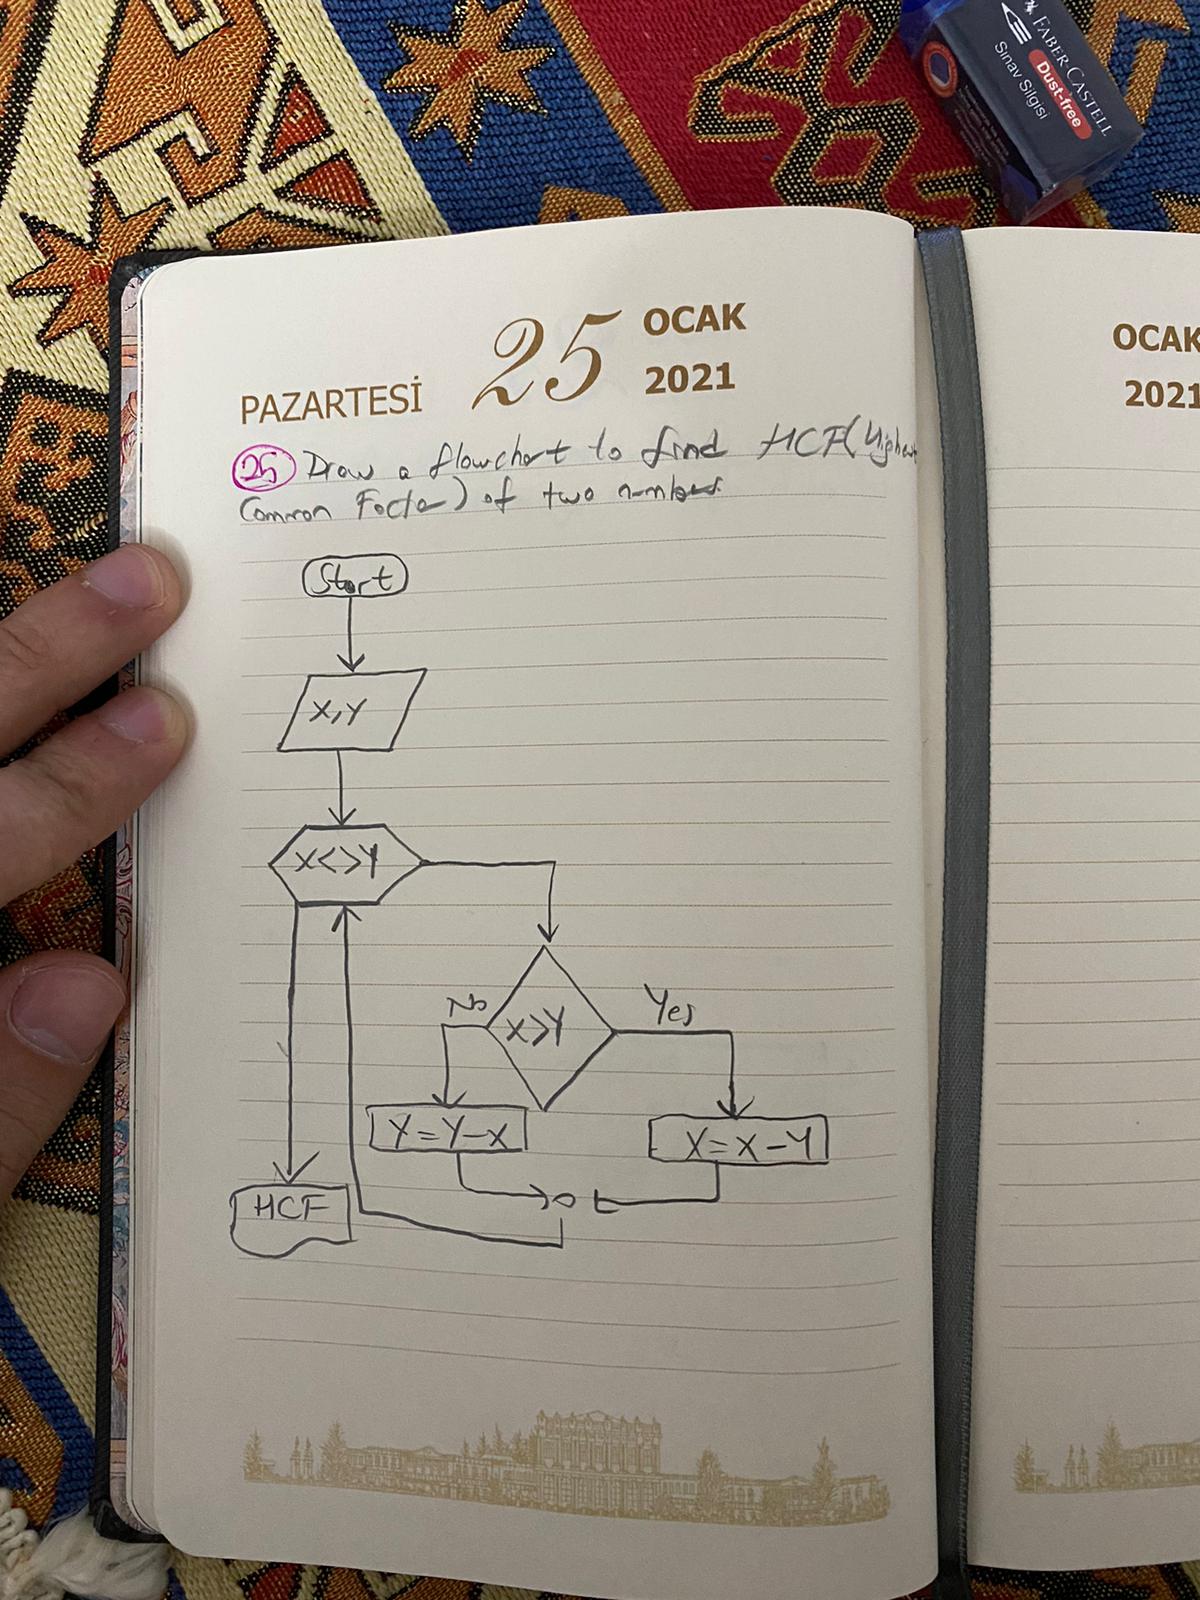 FABER-CASTELL
Dust-free
Sınav Silgisi
PAZARTESİ
25
OCAK
2021
OCAK
2021
25 Draw a flowchart to find HCF (Highest
Common Factor) of two numbers
Start
X, Y
X<>Y
X>Y
No
Yes
Y=Y-X
X=X-Y
HCF